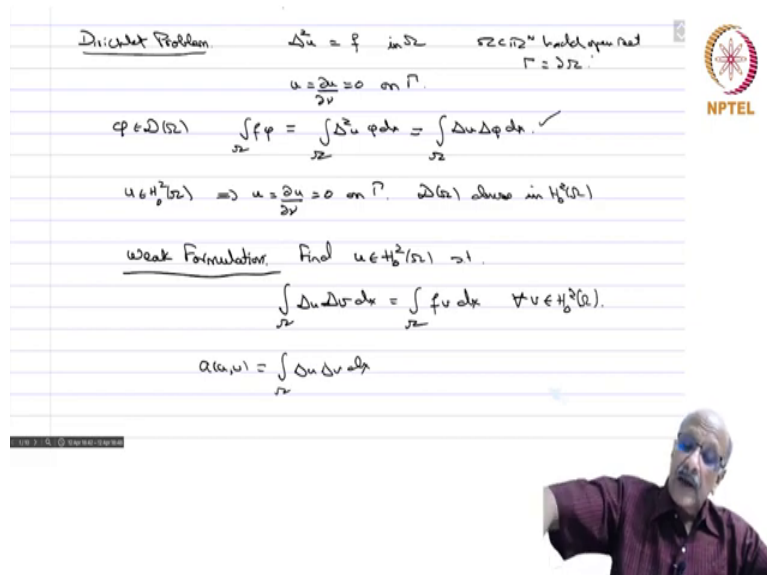 Dirichlet Problem. Δ²u = f in Ω Ω ⊂ ℝᴺ bdd open set
Γ = ∂Ω.
u = ∂u/∂ν = 0 on Γ.
φ ∈ D(Ω) ∫_Ω fφ = ∫_Ω Δ²u φ dx = ∫_Ω Δu Δφ dx. ✓
u ∈ H₀²(Ω) ⇒ u = ∂u/∂ν = 0 on Γ. D(Ω) dense in H₀²(Ω)
Weak Formulation. Find u ∈ H₀²(Ω) s.t.
∫_Ω Δu Δv dx = ∫_Ω f v dx ∀ v ∈ H₀²(Ω).
a(u,v) = ∫_Ω Δu Δv dx
NPTEL